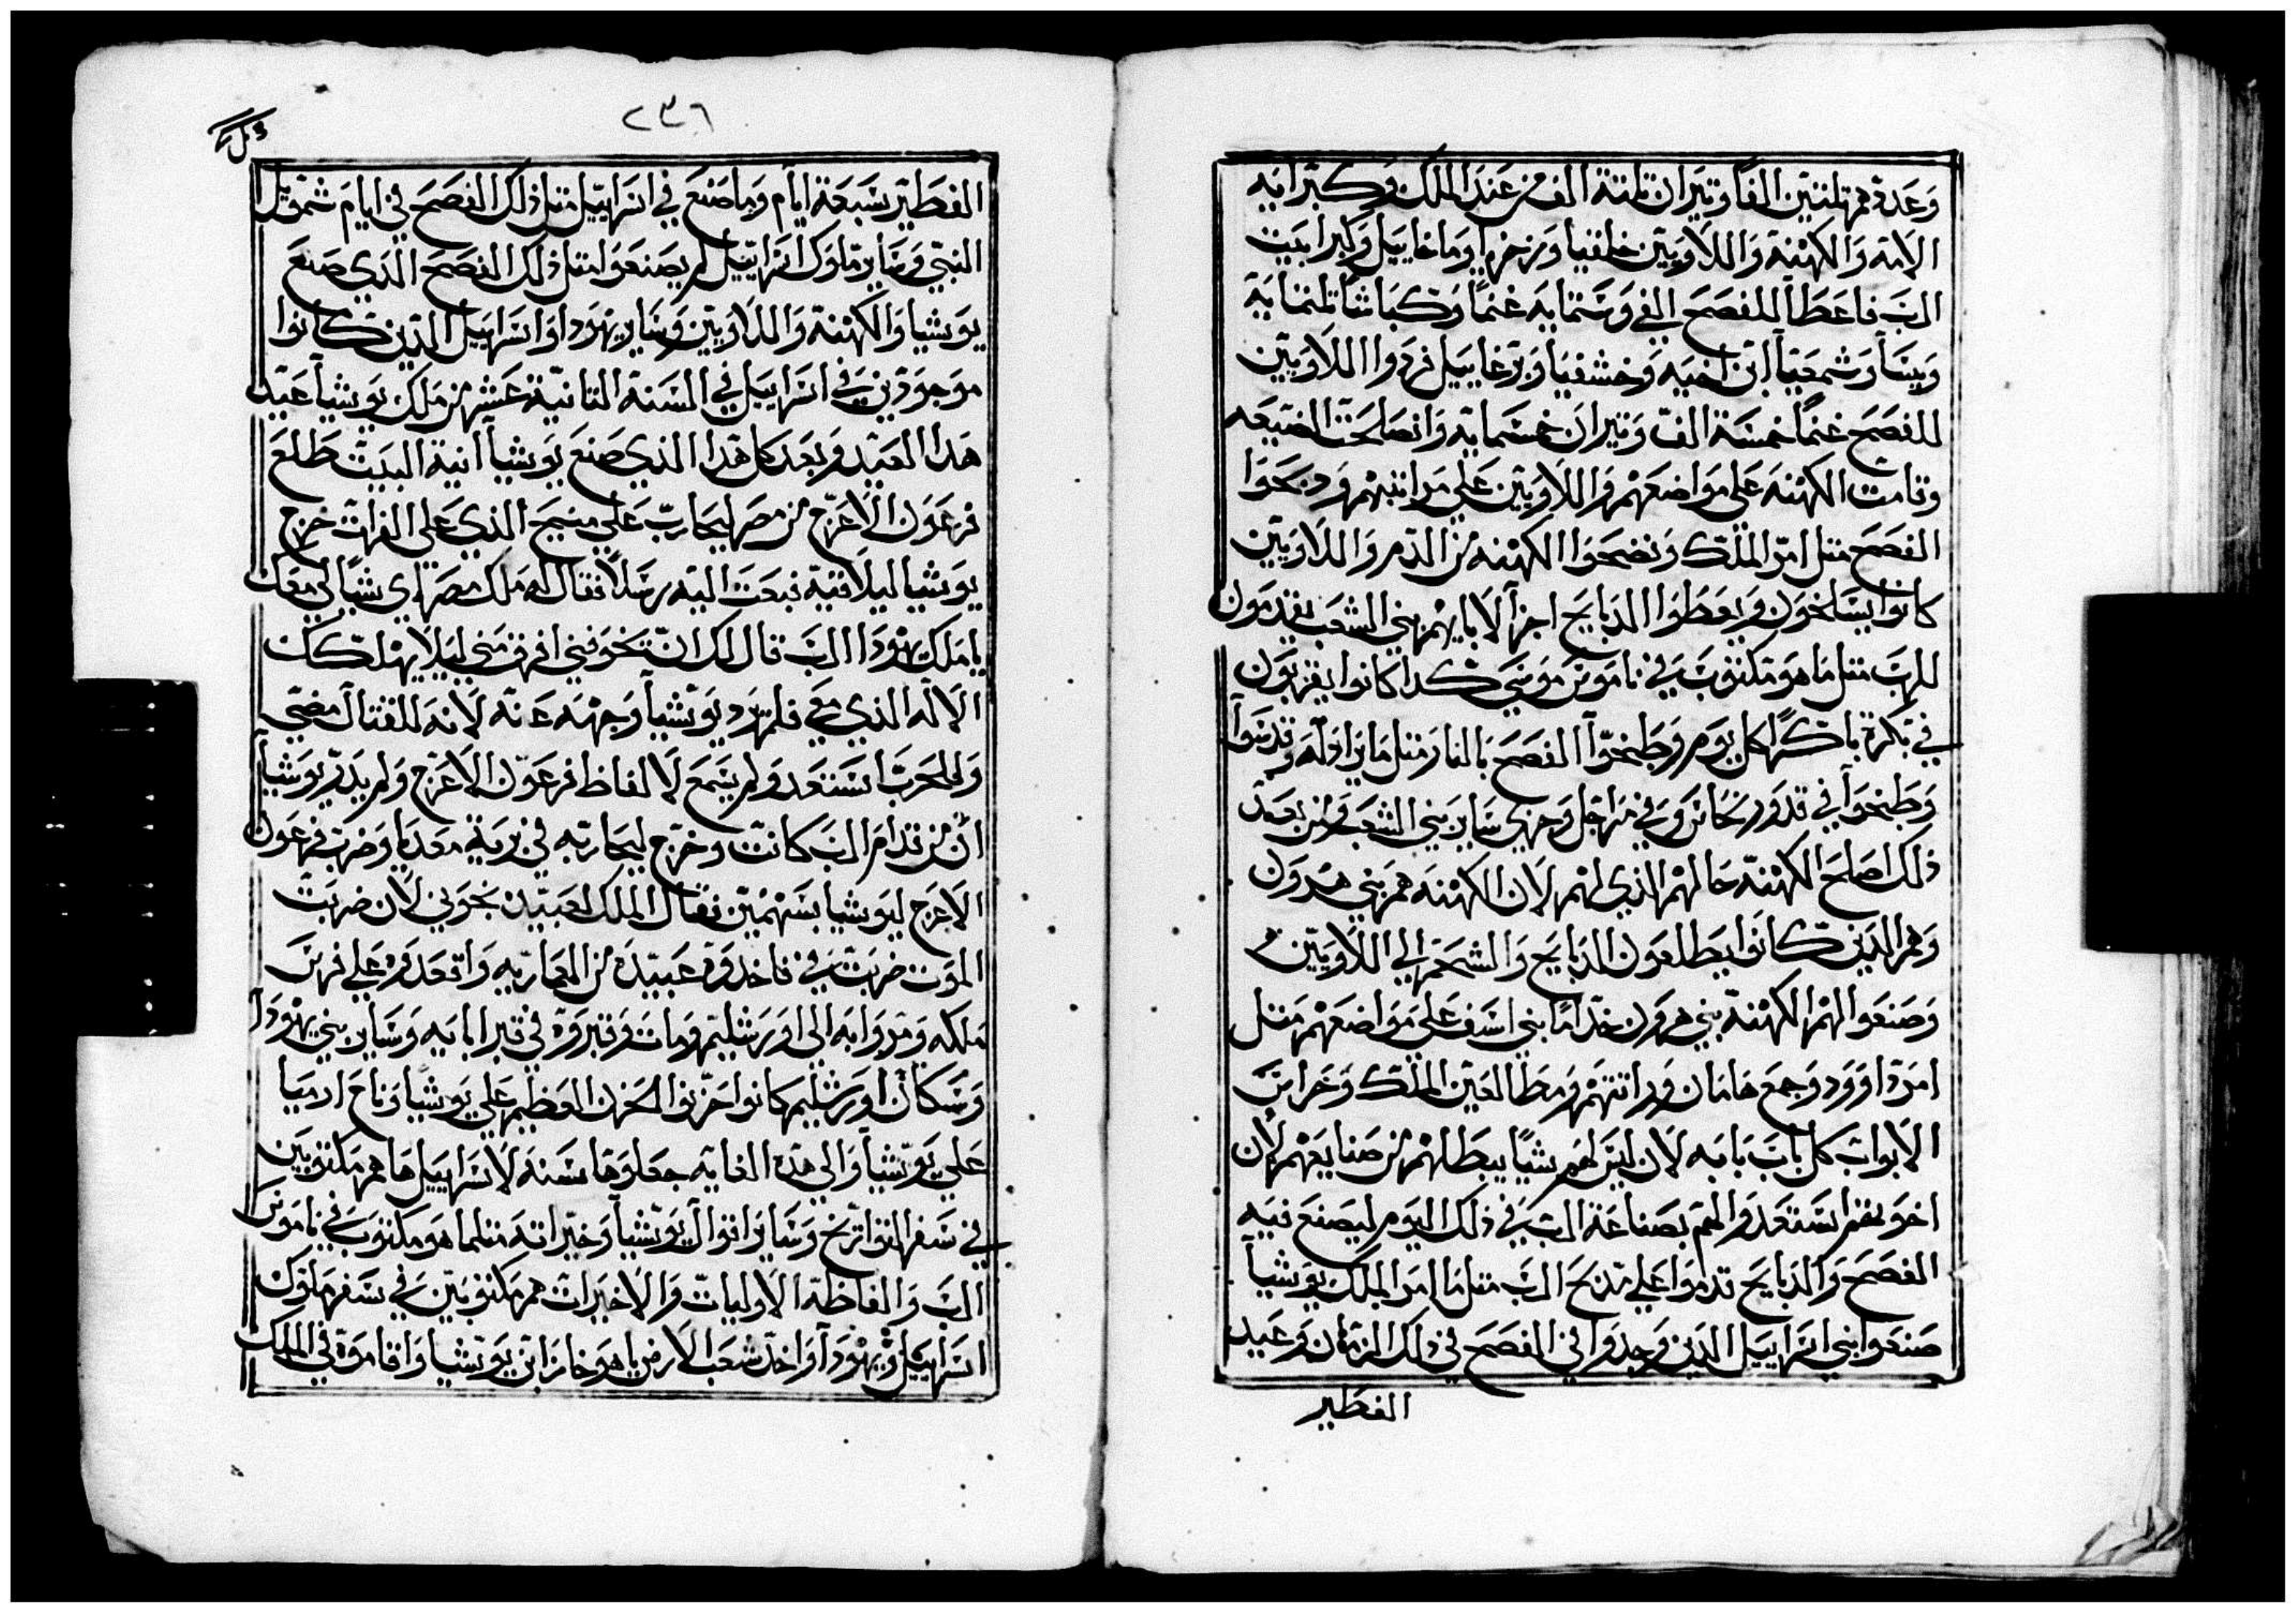 وعدة هم تلتين الفا وتيران تلتة الف من عند الملك وكبرايه
الامة والكهنة واللاويين خلفيا وزخريا وماخاييل وكبرا بيت
الرب فاعطا للفصح الفي وستمايه غنما وكباشا تلتماية
ويسا وشمعيا ابن اخيه وخشفيا وبزغاييل فردوا اللاويين
للفصح غنما خمسة الف وتيران خمسماية وانصلحت الضيعه
وقامت الكهنه على مواضعهم واللاويين على مراتبهم ودبحوا
الفصح متل امر الملك ونضحوا الكهنه من الدم واللاويين
كانوا يسلخون ويعطوا الدبايح اجزا لابايهم بني الشعب يقدمون
للرب متل ما هو مكتوب في ناموس موسي كدا كانوا يقربون
في بكرة باكرا كل يوم وطبخوا الفصح بالنار متل مايزاوله وقدسوا
وطبخوا في قدور نحاس وفي مراجل وجري ساير بني الشعب ومن بعد
ذلك اصلح الكهنه حالهم الذي لهم لان الكهنه هم بني هرون
وهم الدين كانوا يطلعون الدبايح والشحم الي اللاويين
وصنعوا لهم الكهنة بني هرون خداما بني اسف على مواضعهم متل
امر داوود وجمع هامان وراتتهم ومطالعين الملك وحراس
الابواب كل باب بابه لان ليس لهم شيا يبطلهم من صنايعهم لان
اخوتهم استعدوا لهم بصناعة الرب في ذلك اليوم ليصنع فيه
الفصح والدبايح قدموا على مدبح الرب متل ما امر الملك يوشيا
صنعوا بني اسراييل الدين وجدوا في الفصح في ذلك الزمان وعيد
الفطير
٢٣٦
الفطير سبعة ايام وما صنع في اسراييل متل ذلك الفصح في ايام شمويل
النبي وساير ملوك اسراييل لم يصنعوا متل ذلك الفصح الذي صنع
يوشيا والكهنة واللاويين وساير يهودا واسراييل الدين كانوا
موجودين في اسراييل في السنة التانية عشر من ملك يوشيا عيد
هدا العيد وبعد كل هدا الذي صنع يوشيا انية البيت طلع
فرعون الاعرج من مصر ليحارب على منبج الذي على الفرات خرج
يوشيا ليلاقيه فبعت اليه رسلا فقال له ملك مصر اي شيا لي معك
يا ملك يهودا الرب قال لك ان تخوفني افرق مني ليلا يهلكك
الاله الذي معي فلم يرد يوشيا وجهه عنه لانه للقتال مضي
وللحرب استعد ولم يسمع لالفاظ فرعون الاعرج ولم يدر يوشيا
ان من قدام الرب كانت وخرج ليحاربه في برية معديا وضرب فرعون
الاعرج ليوشيا بسهمين فقال الملك لعبيده نحوني لان ضربت
الموت ضربت في فاخدوه عبيده من المحاربه واقعدوه على فرس
ملكه وردوا به الى اورشليم ومات وقبروة في قبر ابايه وساير بني يهودا
وسكان اورشليم كانوا حزنوا الحزن العظيم علي يوشيا وناح ارميا
على يوشيا والي هده الغايه جعلوها سنة لاسراييل ها هم مكتوبين
في سفر التواريخ وساير اقوال يوشيا وخيراته متلما هو مكتوب في ناموس
الرب والفاظه الاوليات والاخيرات هم مكتوبين في سفر ملوك
اسراييل ويهودا واخد شعب الارض ياهوخاز ابن يوشيا واقاموة في الملك